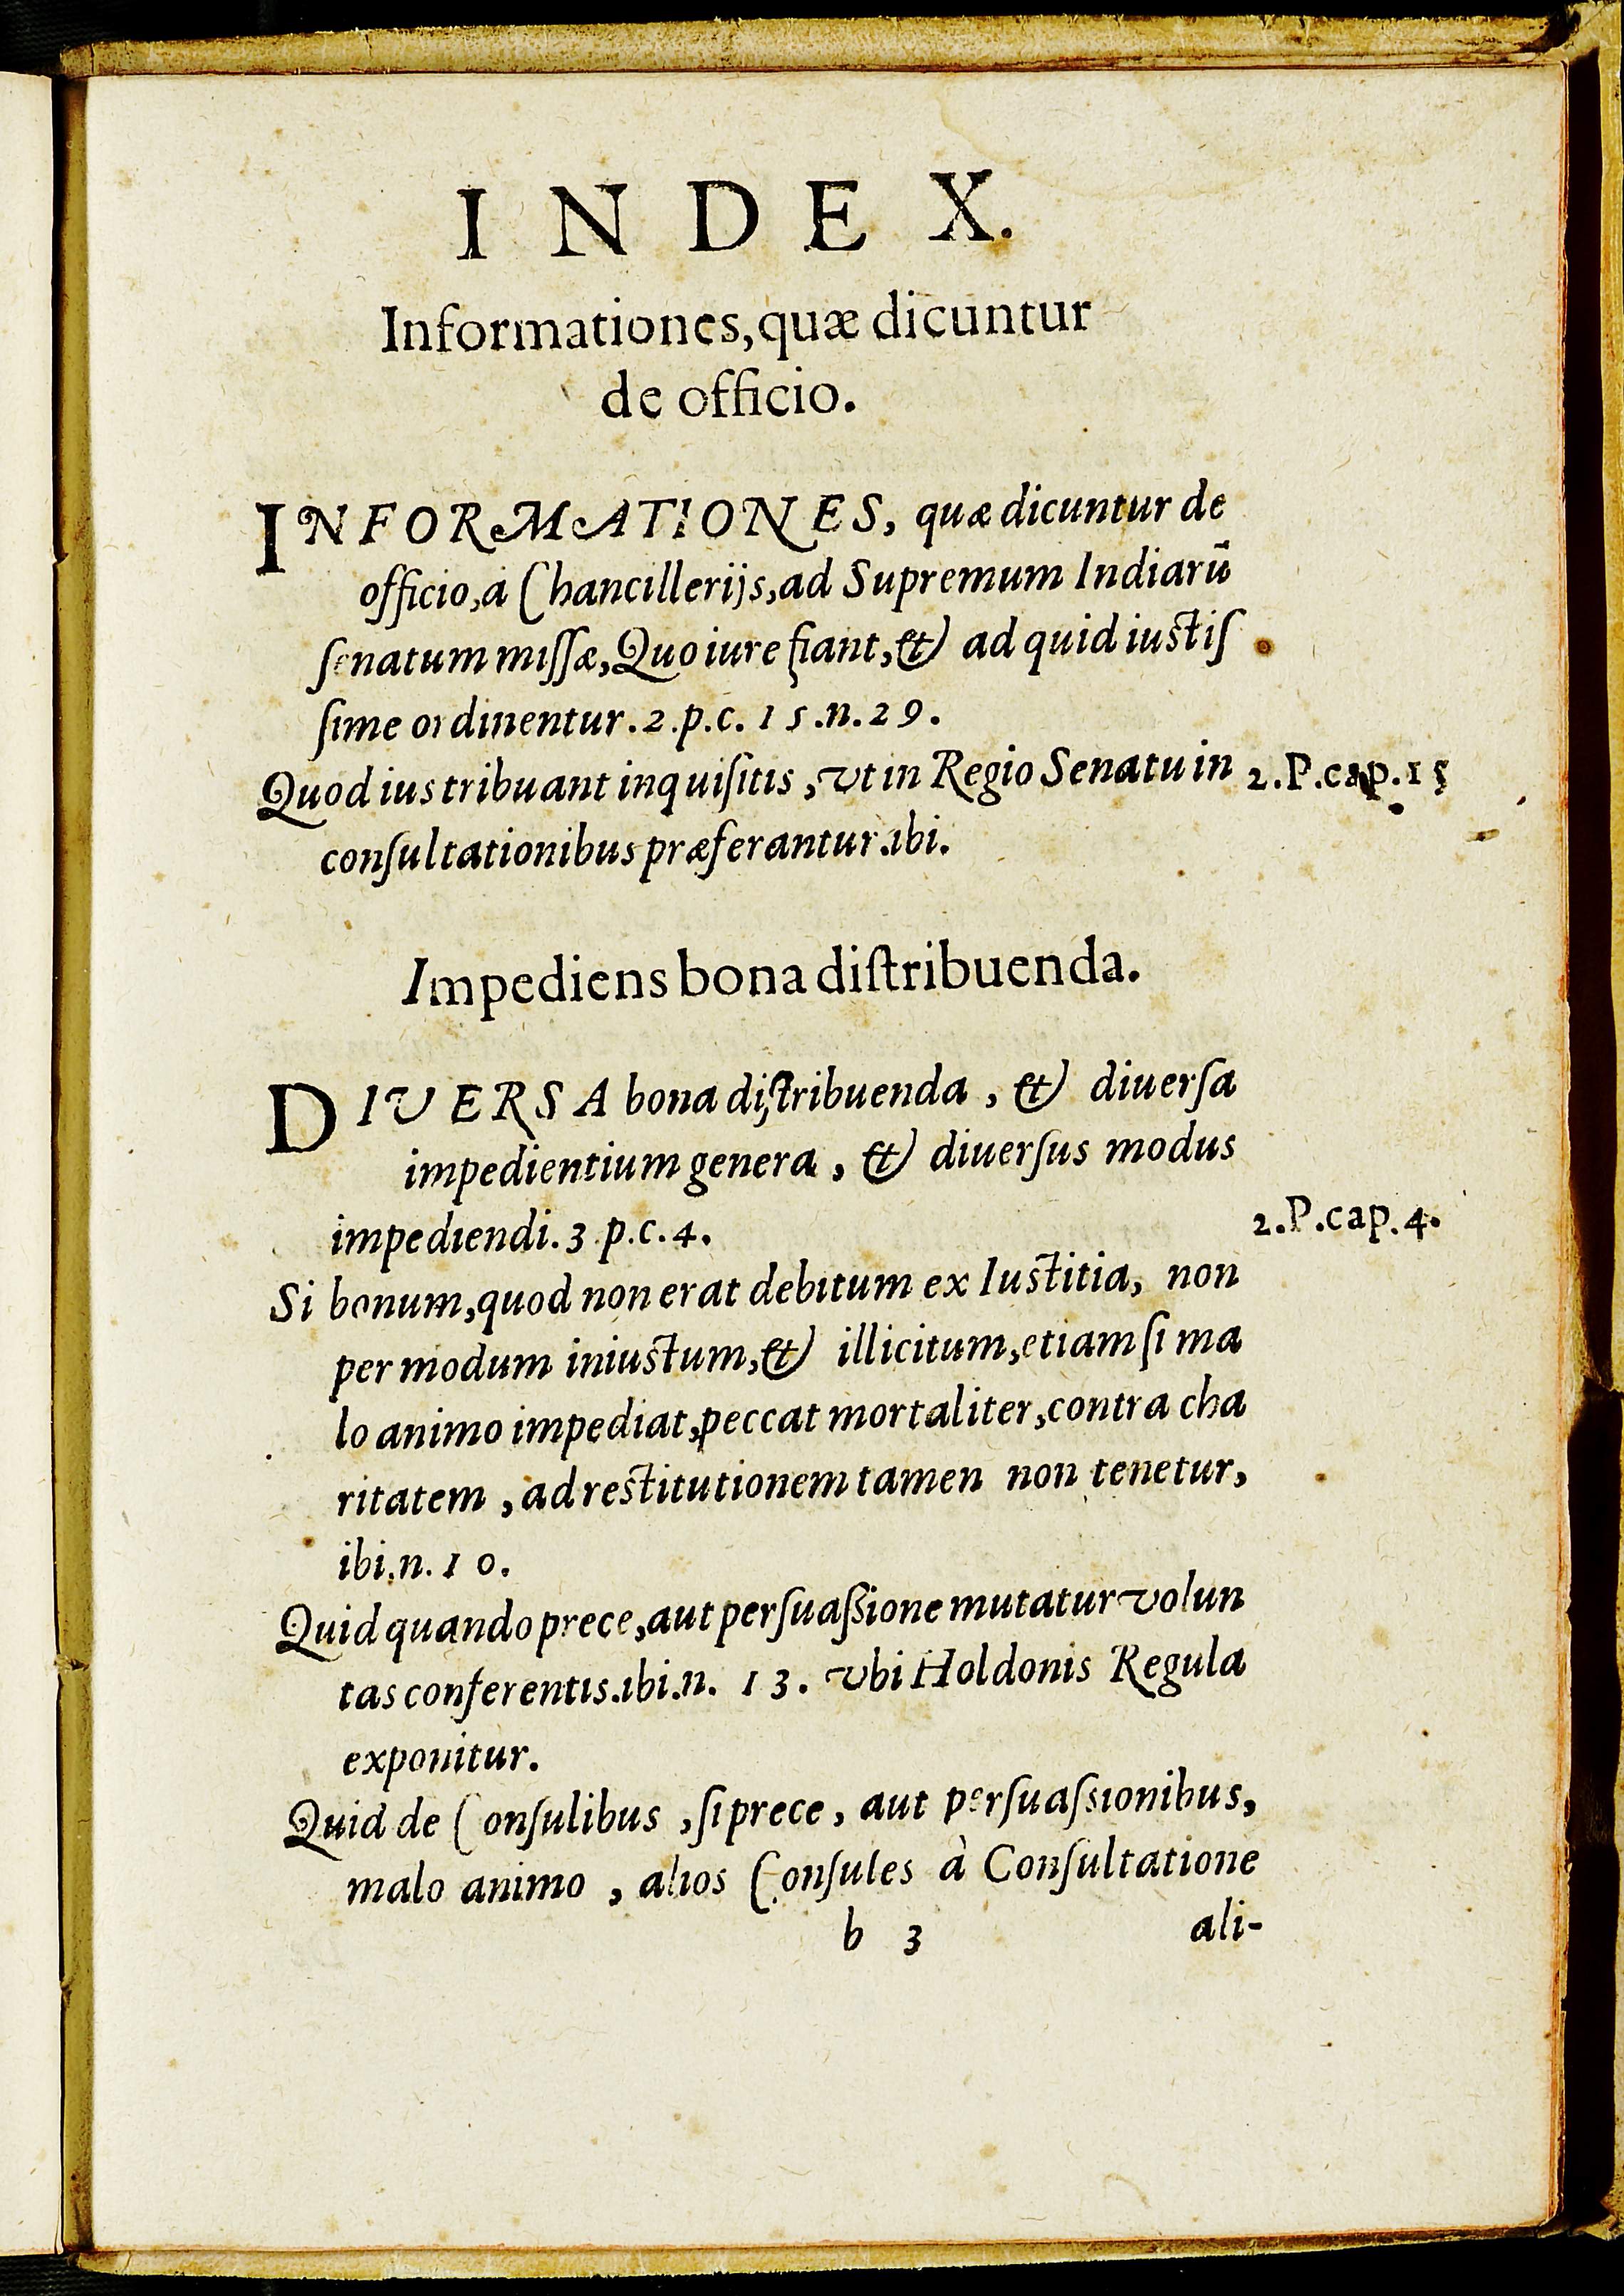 INDEX.
Informationes, quæ dicuntur
de officio.
INFORMATIONES, quæ dicuntur de
officio, à Chancillerijs, ad Supremum Indiarũ
ſenatum miſſæ, Quo iure fiant, & ad quid iustiſ
ſime ordinentur. 2. p. c. 15. n. 29.
Quod ius tribuant inquiſitis, vt in Regio Senatu in
2. P. cap. 15
conſultationibus præferantur. ibi.
Impediens bona diſtribuenda.
DIVERSA bona diſtribuenda, & diuerſa
impedientium genera, & diuerſus modus
impediendi. 3. p. c. 4.
2. P. cap. 4.
Si bonum, quod non erat debitum ex Iustitia, non
per modum iniustum, & illicitum, etiam ſi ma
lo animo impediat, peccat mortaliter, contra cha
ritatem, ad restitutionem tamen non tenetur,
ibi. n. 10.
Quid quando prece, aut perſuaſsione mutatur volun
tas conferentis. ibi. n. 13. vbi Holdonis Regula
exponitur.
Quid de Conſulibus, ſi prece, aut perſuaſsionibus,
malo animo, alios Conſules à Conſultatione
b 3
ali-